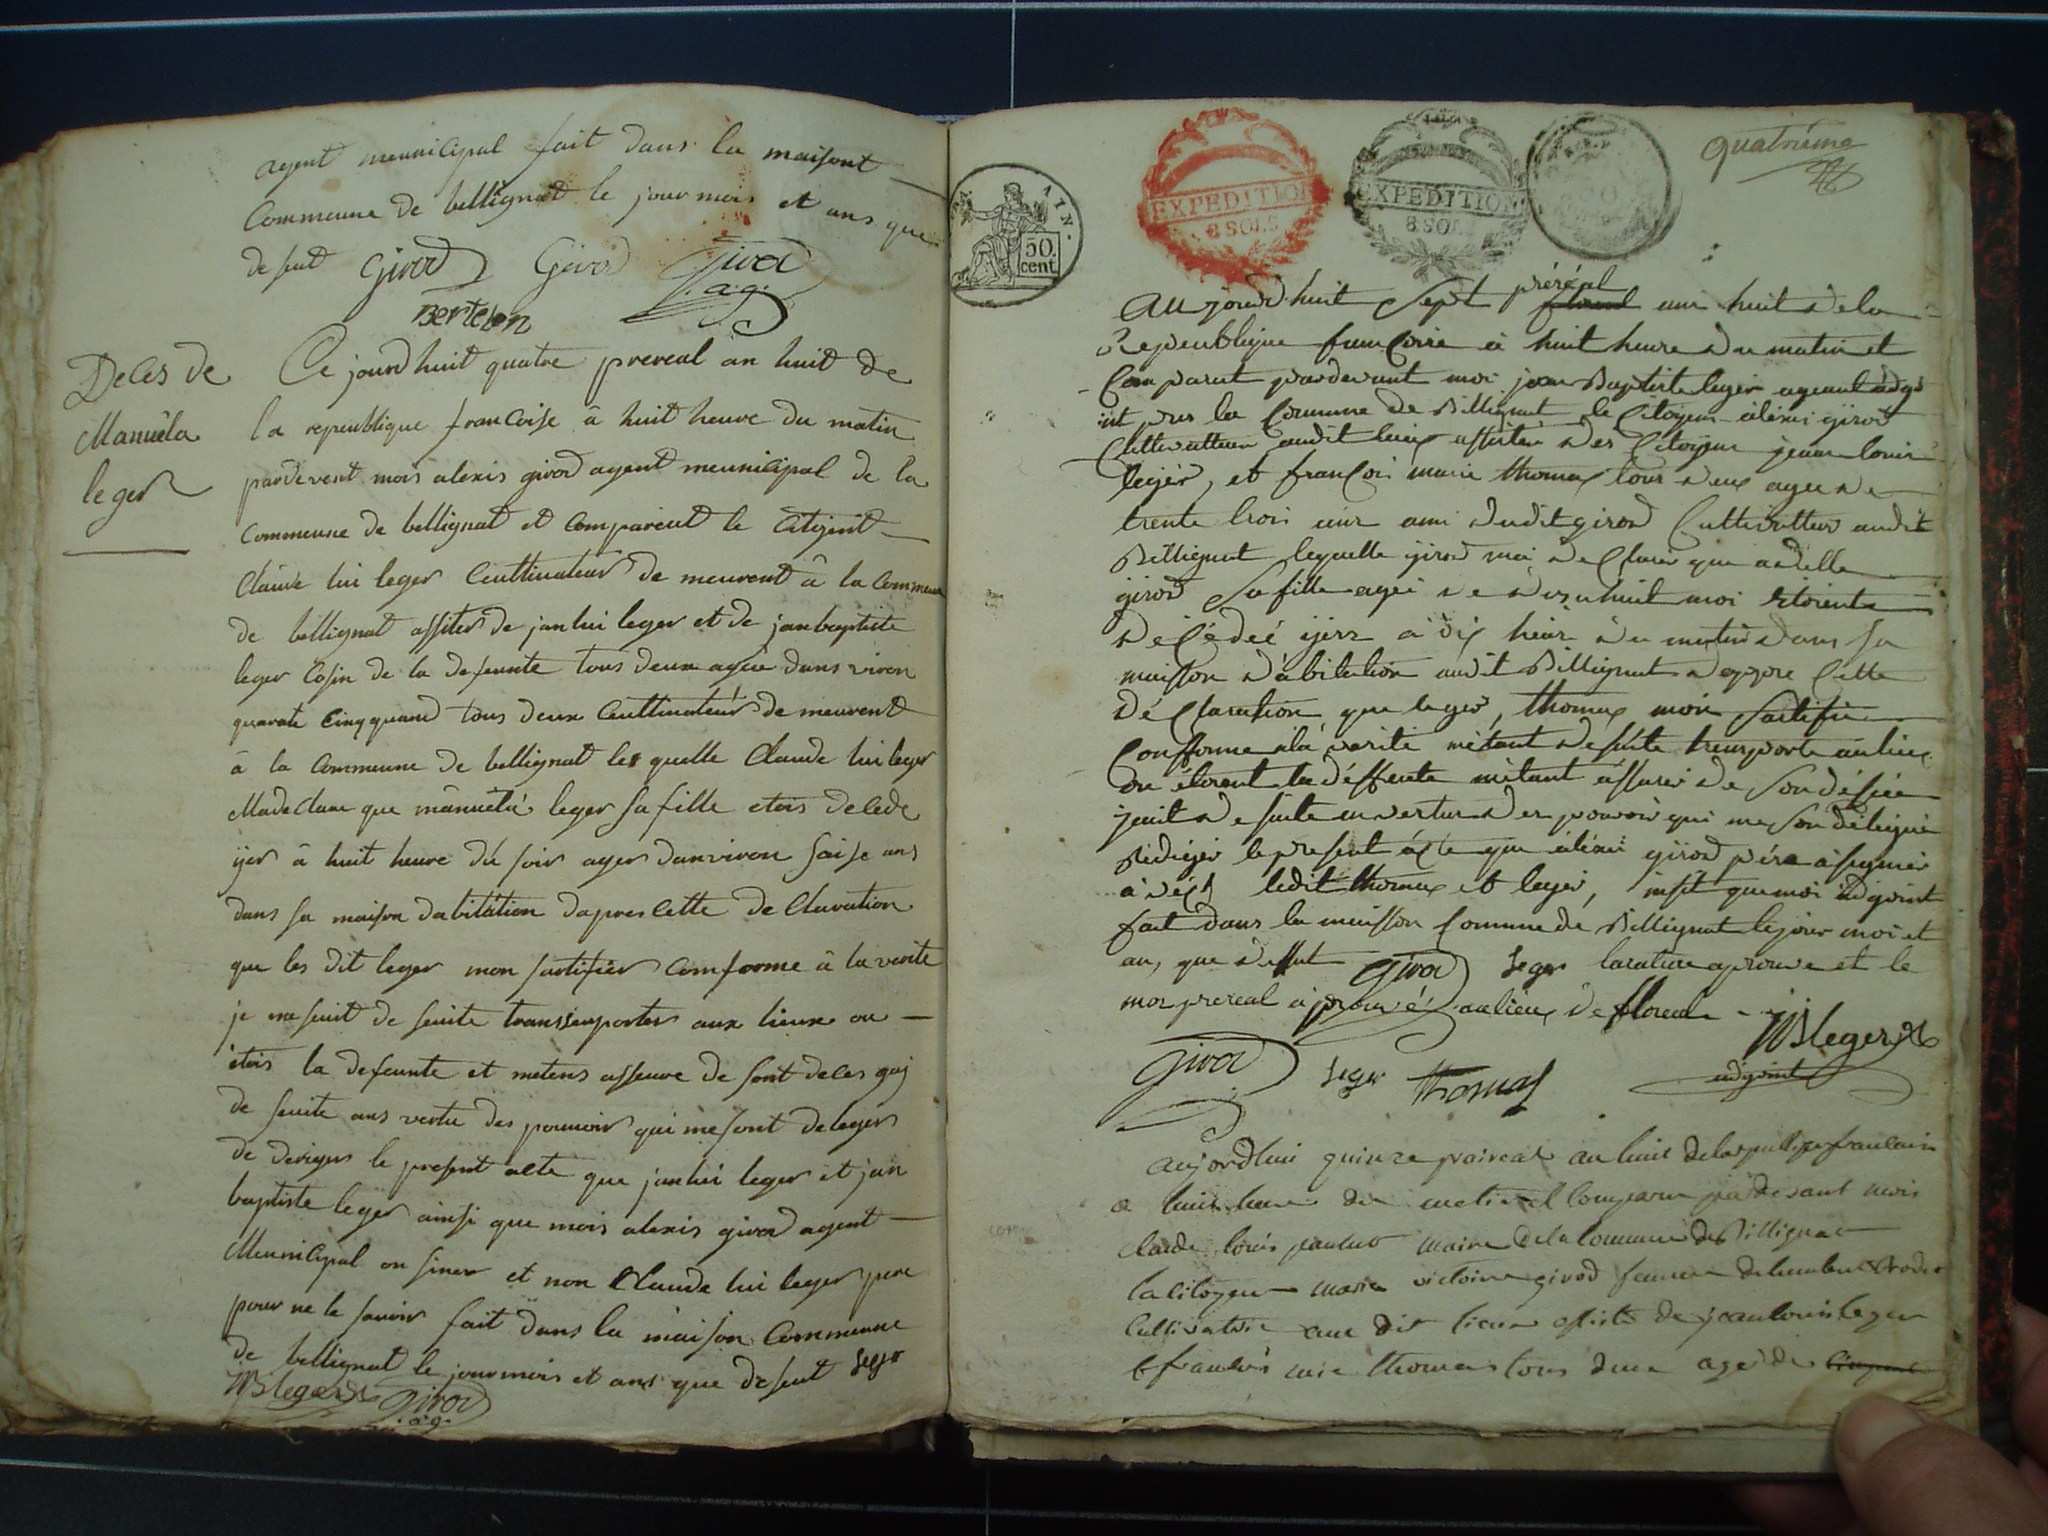 agent meunicipal fait dans la maisont
Commeune de bellignat le jour mois et ans que
de sent Girod Girod Girod
a.g.
Bertelon
Deces de
Manuéla
leger
Ce jourdhuit quatre prereal an huit de
la republique francoise â huit heure du matin
pardevent mois alexis girod agent meunicipal de la
Commeune de bellignat et comparent le Citojent
Claude lui leger Ceultinateur de meurent â la Commeune
de bellignat assiter de jan lui leger et de jan baptiste
leger Cosin de la defeunte tous deux agée danviron
quarate cinq quand tous deux Ceultinateur de meurent
â la Commeune de bellignat les quelle Claude lui leger
Madeclare que mânuéla leger sa fille etois decede
ÿer â huit heure du soir ager danviron saise ans
dans sa maison dabitâtion dapres cette declaration
que les dit leger mon sartifier comforme â la verite
je me suit de seuite transsinporter aux lieux ou
étois la defeunte et metens asseure de sont deces gaj
de seuite ans vertu des pouvoir qui me sont deleger
de deriger le present acte que jan lui leger et jan
baptiste leger ainsi que mois alexis girod agent
Meunicipal on siner et non Claude lui leger pere
pour ne le savoir fait dans la maison Commeune
de bellignat le jour mois et ans que desent leger
JJBleger Girod
a.g.
50.
cent.
EXPEDITION
8 SOLS
EXPEDITION
8 SOLS
quatrieme
Aujourd'huit Sept préréal floreal an huit dela
Republique francoise à huit heure du matin et
Comparut pardevant moi jean Baptiste leger ageant adgo
int pres la Comune de Billignat le Citoyen aléxi girod
Cultivatteur audit lieux assister des Citoÿen jean louis
legér, et françois marie thomas tous deux agée de
trente trois ans ami dudit girod Cultivatteur audit
Billignat lequelle girod mai declarér que adelle
girod Sa fille agée de dixuhuit moi étoients
décédeé ÿier à dix heur du matin dans sa
maisson dâbitation audit Billignat doppre Cette
déclaration que leger, thomas mon Sartifié
Confforme àlà verité mètant de suite transporte au lieux
ou étoient la déffunte mètant àssurér de son déssée
jeuit de suite en vertu des pouvoir qui me son déléguér
Rédiger le present àcte que aléxi girod pére à signér
àvéc ledit thomas et leger, insit que moi adgoint
fait dans la maisson Comune de Billignat le jour moi et
an, que dessut Girod leger larature aprouve et le
mot prereal àprouvé au lieux de floreal
JJBleger
adgoint
Girod leger thomas
aujordhui quinze praireal an huit dela republique francaise
a huit heure du matin et comparu pardevant mois
claude louis maire dela Commune de Billignat
la citoyen marie victoire girod femme
Cultivatrice aux dit lieux assisté de jean louis leger
et francois marie thomas tous deux agé de